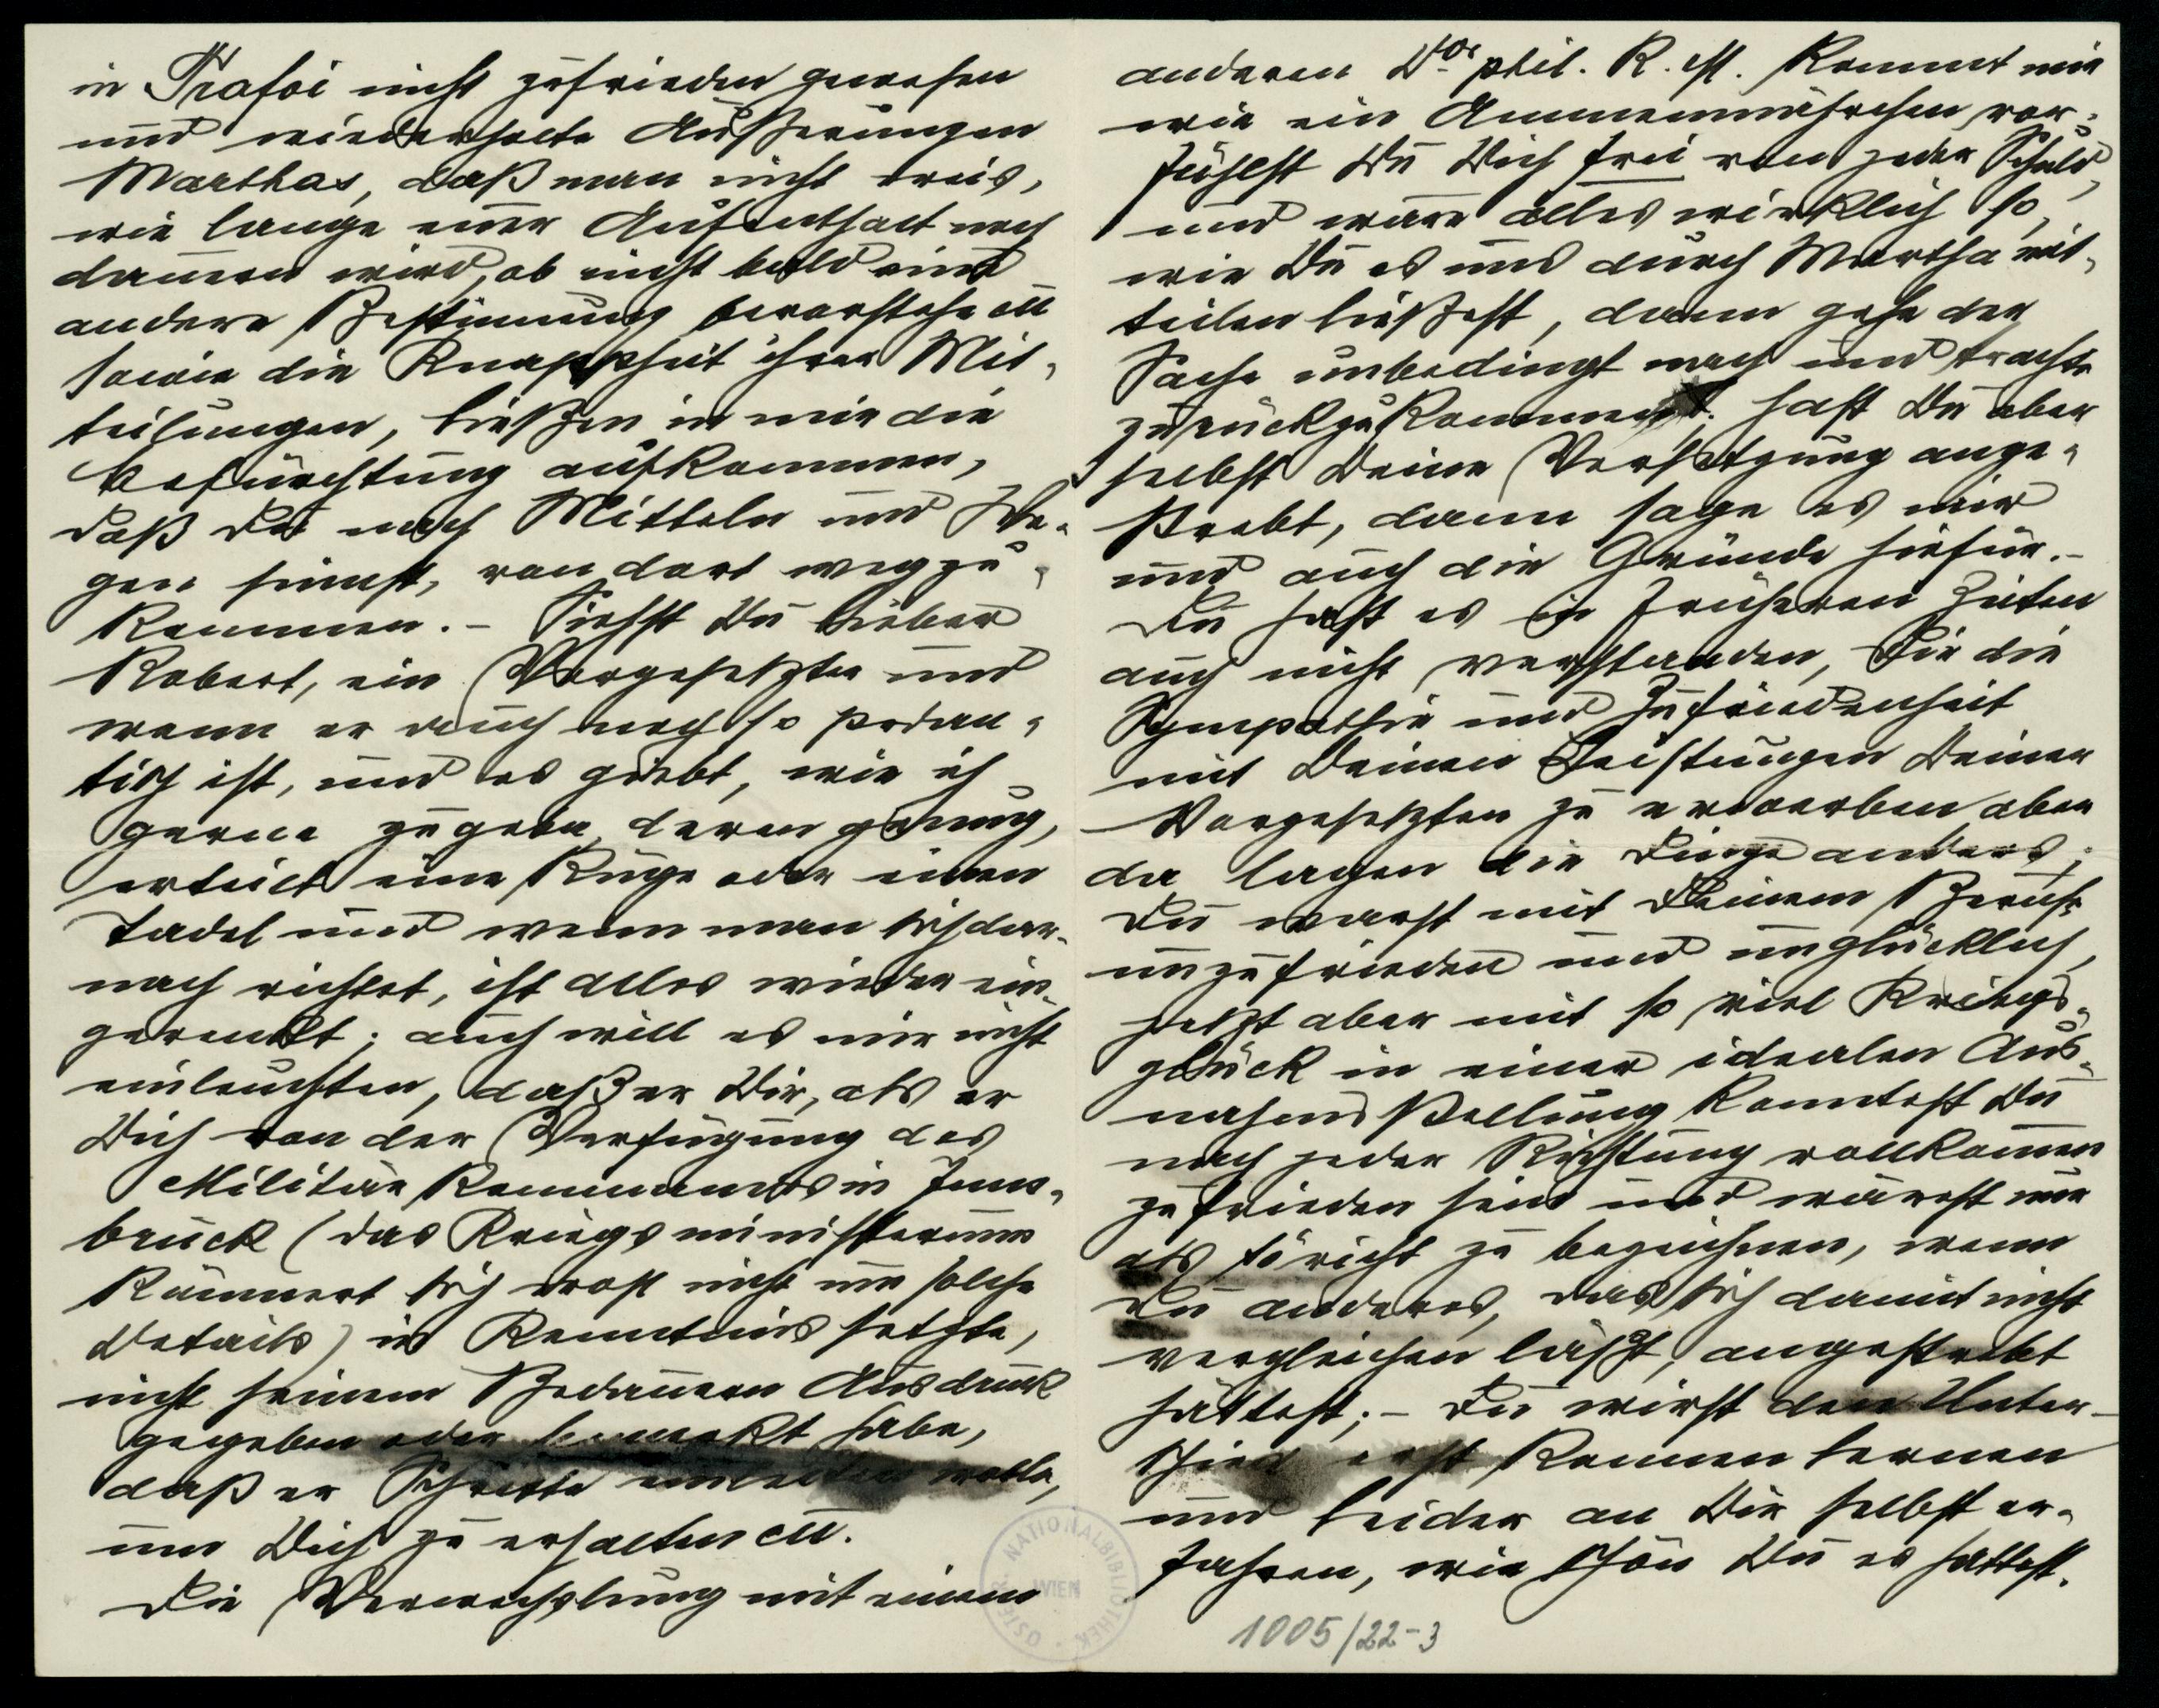 in Trafoi nicht zufrieden gewesen
und wiederholte Äußerungen
Marthas, daß man nicht weis,
wie lange euer Aufenthalt noch
dauern wird, ob nicht bald eine
andere Bestimmung bevorstehe etc
sowie die Knappheit ihrer Mit-
teilungen, ließen in mir die
Befürchtung aufkommen,
daß Du nach Mitteln und We-
gen sinnst, von dort wegzu-
kommen. – Siehst Du lieber
Robert, ein Vorgesetzter und
wenn er auch noch so pedan-
tisch ist, und es giebt, wie ich
gerne zugebe, deren genug,
erteilt eine Rüge oder einen
Tadel und wenn man sich dar-
nach richtet, ist alles wieder ein-
gerenkt; auch will es mir nicht
einleuchten, daß er Dir, als er
Dich von der Verfügung des
Militär Kommandos in Inns-
bruck (das Kriegsministerium
kümmert sich wohl nicht um solche
Details) in Kenntnis setzte,
nicht seinem Bedauern Ausdruck
gegeben oder bemerkt habe,
daß er Schritte einleiten wolle,
um Dich zu erhalten etc.
Die Verwechslung mit einem
anderen Dor phil. R. M. kommt mir
wie ein Ammenmährchen vor;
fühlst Du Dich frei von jeder Schuld,
und wäre alles wirklich so,
wie Du es uns durch Martha mit-
teilen ließest, dann gehe der
Sache unbedingt nach und trachte
zurückzukommen; hast Du aber
selbst Deine Versetzung ange-
strebt, dann sage es mir
und auch die Gründe hiefür. –
Du hast es in früheren Zeiten
auch nicht verstanden, Dir die
Sympathie und Zufriedenheit
mit Deinen Leistungen Deiner
Vorgesetzten zu erwerben aber
da lagen die Dinge anders;
Du warst mit Deinem Berufe
unzufrieden und unglücklich,
jetzt aber mit so viel Kriegs-
glück in einer idealen Aus-
nahmsstellung konntest Du
nach jeder Richtung vollkommen
zufrieden sein und wärest nur
als töricht zu bezeichnen, wenn
Du anderes, das sich damit nicht
vergleichen läßt, angestrebt
hättest; – Du wirst den Unter-
schied erst kennen lernen
und leider an Dir selbst er-
fahren, wie schön Du es hattest.
ÖSTERR. NATIONALBIBLIOTHEK
WIEN
1005/22-3